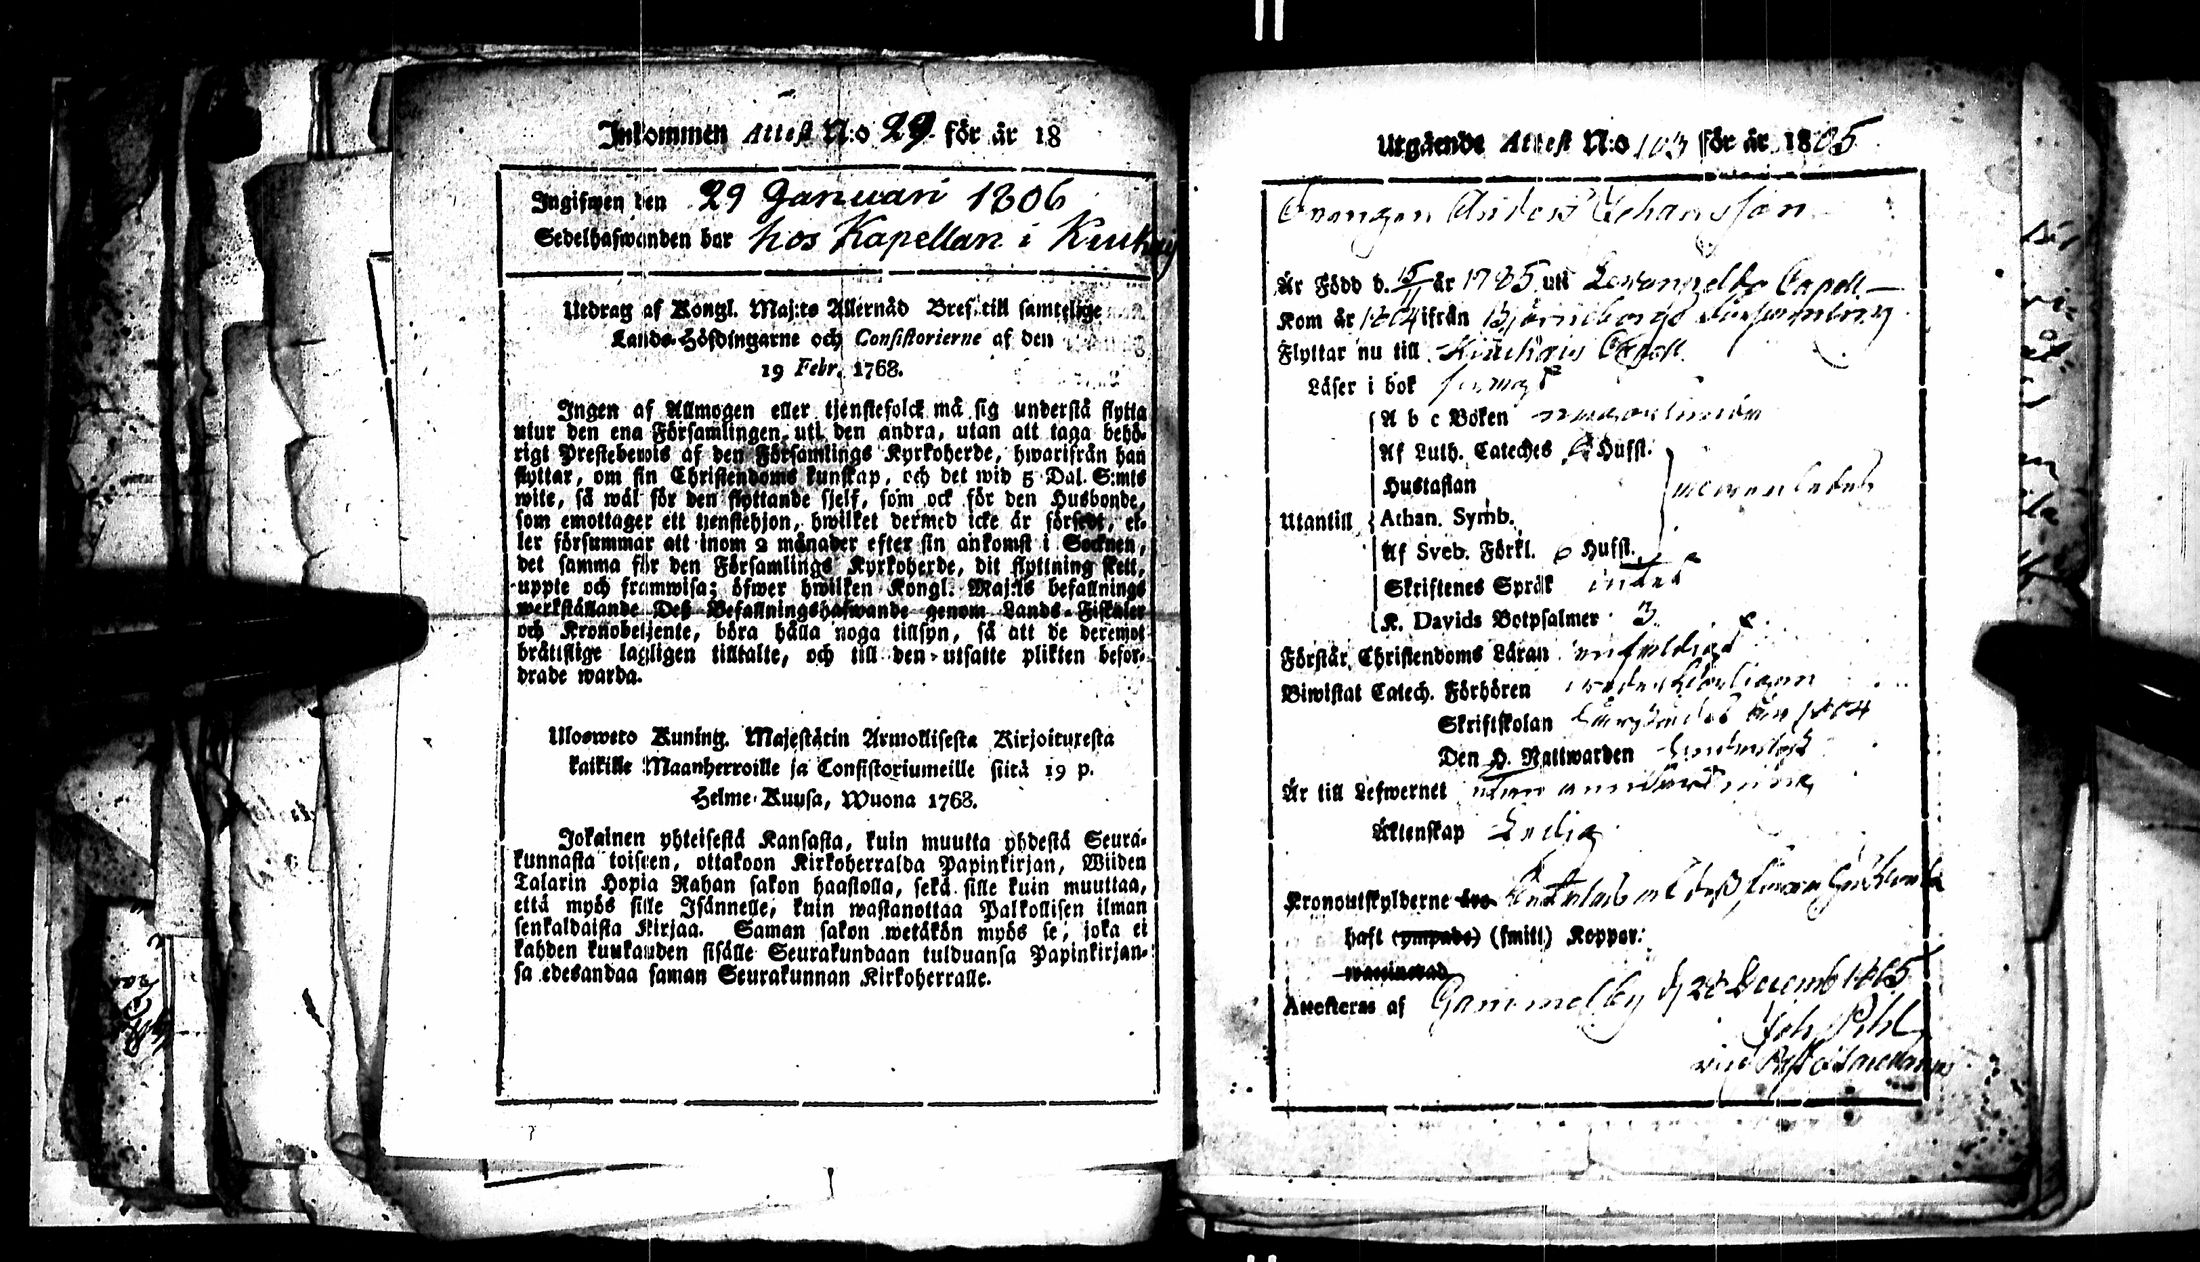 Inkommen Attest N:o 29 för år 18
Ingifwen den 29 Januari 1806
Sedelhafwanden bor hos Kapellan i
Utdrag af Kongl. Maj:ts Allernåd Bref till samtelige
Lands-Höfdingarne och Consistorierne af den
19 Febr. 1768.
Ingen af Allmogen eller tjenstefolck må sig understå flytta
utur den ena Församlingen uti den andra, utan att taga behö-
rigt Prestebewis af den Församlings Kyrkoherde, hwarifrån han
flyttar, om sin Christendoms kunskap, och det wid 5 Dal. S:mts
wite, så wäl för den flyttande sjelf, som ock för den Husbonde,
som emottager ett tjenstehjon, hwilket dermed icke är försedt, el-
ler försummar att inom 2 månader efter sin ankomst i Socknen,
det samma för den Församlings Kyrkoherde, dit flyttning skett,
uppte och framwisa; öfwer hwilken Kongl. Maj:ts befallnings
werkställande Deß Befallningshafwande genom Lands-Fiskaler
och Kronobetjente, böra hålla noga tillsyn, så att de deremot
bråttslige lagligen tilltalte, och till den utsatte plikten befor-
drade warda.
Ulosweto Kuning. Majestätin Armollisesta Kirjoituxesta
kaikille Maanherroille ja Consistoriumeille siitä 19 p.
Helme-Kuusa, Wuona 1768.
Jokainen yhteisestä Kansasta, kuin muutta yhdestä Seura-
kunnasta toiseen, ottakoon Kirkoherralda Papinkirjan, Wiiden
Talarin Hopia Rahan sakon haastolla, sekä sille kuin muuttaa,
että myös sille Isännelle, kuin wastanottaa Palkollisen ilman
senkaldaista Kirjaa. Saman sakon wetäkön myös se, joka ei
kahden kuukauden sisälle Seurakundaan tulduansa Papinkirjan-
sa edesandaa saman Seurakunnan Kirkoherralle.
Utgående Attest N:o 103 för år 1805
Drengen Anders Johansson
Är Född d. år 1785 uti Capell
Kom år 1804 ifrån Björneborgs
Flyttar nu till Capell
Läser i bok
A b c Boken
Af Luth. Cateches 6 Hufst.
Hustaflan
Utantill Athan. Symb.
Af Sveb. Förkl. 6 Hufst.
Skriftenes Språk intet
K. Davids Botpsalmer 3.
Förstår Christendoms Läran enfaldigt
Biwistat Catech. Förhören
Skriftskolan 1804
Den H. Nattwarden
Är till Lefwernet utan anmärkning
Äktenskap Ledig
Kronoutskylderne äro
haft (ympade) (smitt) Koppor:
waccinerad
Attesteras af Gammelby d 28 Decemb 1805
Joh Pihl